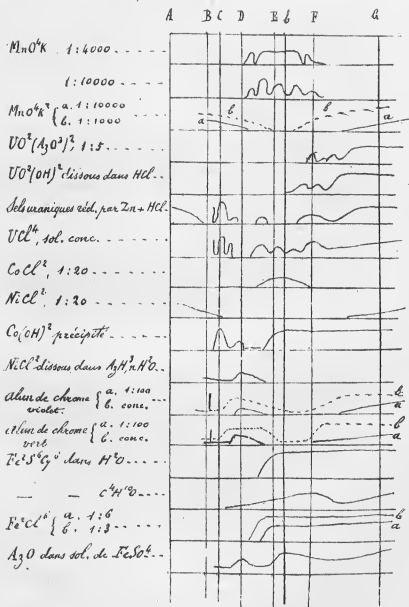 A B C D E b F G
MnO⁴K 1:4000
1:10000
MnO⁴K² { a. 1:10000
b. 1:1000
b b
a a
UO²(AzO³)² 1:5
UO²(OH)² dissous dans HCl
Sels uraniques réd. par Zn+HCl
UCl⁴, sol. conc.
CoCl², 1:20
NiCl², 1:20
Co(OH)² précipité
NiCl² dissous dans AzH³, nH²O
Alun de chrome { a. 1:100
violet. b. conc.
b
a
Alun de chrome { a. 1:100
vert b. conc.
b
a
Fe²S⁶Cy⁶ dans H²O
— — C⁴H¹⁰O
Fe²Cl⁶ { a. 1:6
b. 1:3
b
a
AzO dans sol. de FeSO⁴